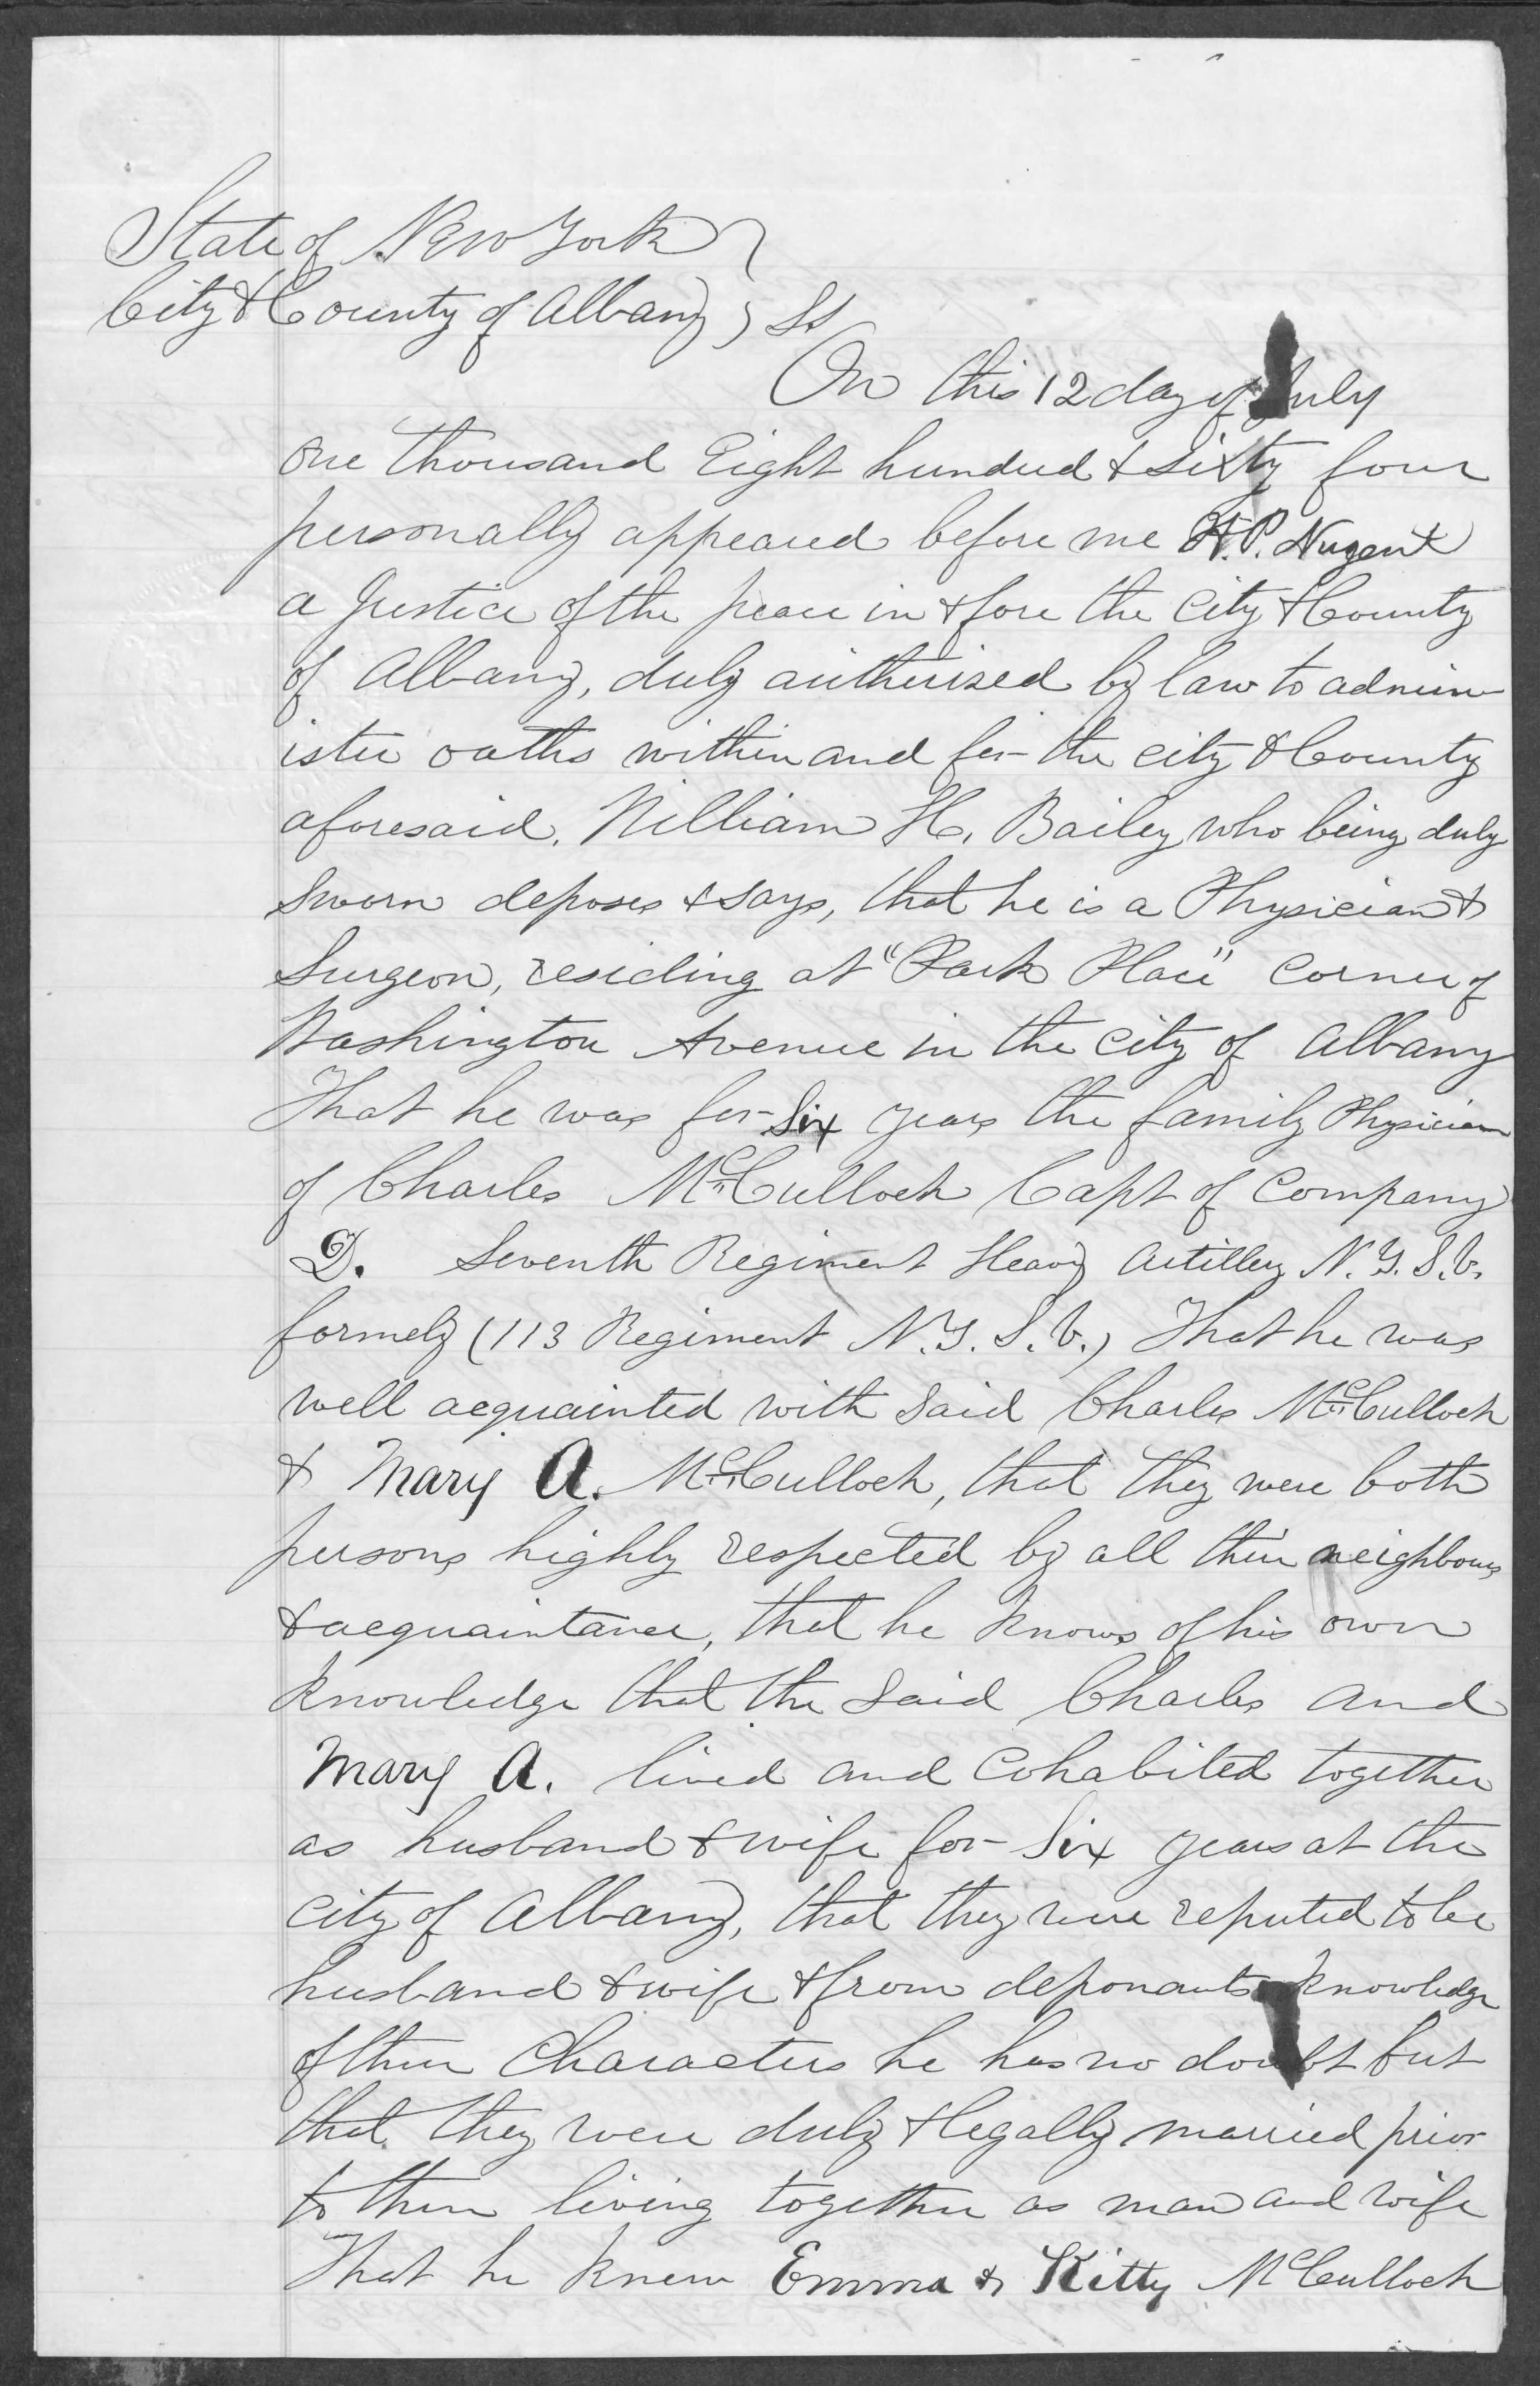 State of New York }
City & County of Albany } SS
On this 12 day of July
one thousand Eight hundred & sixty four
personally appeared before me H.P. Nugent
a Justice of the peace in & fore the City & County
of Albany, duly autherised by law to admin-
ister oaths within and for the City & County
aforesaid, William H. Bailey who being duly
sworn deposes & says, that he is a Physician &
Surgeon, residing at "Park Place" corner of
Washington Avenue in the City of Albany
That he was for Six years the family Physician
of Charles McCulloch Capt of Company
D. Seventh Regiment Heavy Artillery N.Y.S.V.
formely (113 Regiment N.Y.S.V.) That he was
well acquainted with said Charles McCulloch
& Mary A. McCulloch, that they were both
persons highly respected by all their neighbours
& acquaintance, that he knows of his own
knowledge that the said Charles and
Mary A. lived and cohabited together
as husband & wife for Six years at the
City of Albany, that they were reputed to be
husband & wife & from deponants knowledge
of their characters he has no doubt but
that they were duly & legally married prior
to their living together as man and wife
That he knew Emma & Kitty McCulloch